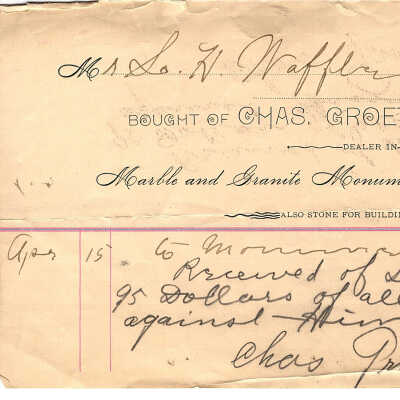 Mr So. H. Waffler
BOUGHT OF CHAS. GROE
DEALER IN
Marble and Granite Monum
ALSO STONE FOR BUILDIN
Apr 15 to Monumen
Received of S
95 Dollars of all
against Him
Chas Gr